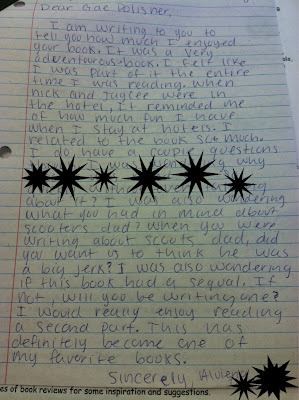 Dear Gae Polisher,
I am writing to you to
tell you how much I enjoyed
your book. It was a very
adventurous book. I felt like
I was part of it the entire
time I was reading. When
nick and Jaycee were in
the hotel, it reminded me
of how much fun I have
when I stay at hotels. I
related to the book so much.
I do have a couple questions
I was why
about it? I was also wondering
what you had in mind about
scooters dad? When you were
writing about scoots dad, did
you want us to think he was
a big jerk? I was also wondering
if this book had a sequal. If
not, will you be writing one?
I would really enjoy reading
a second part. This has
definitely become one of
my favorite books.
Sincerely,
es of book reviews for some inspiration and suggestions.